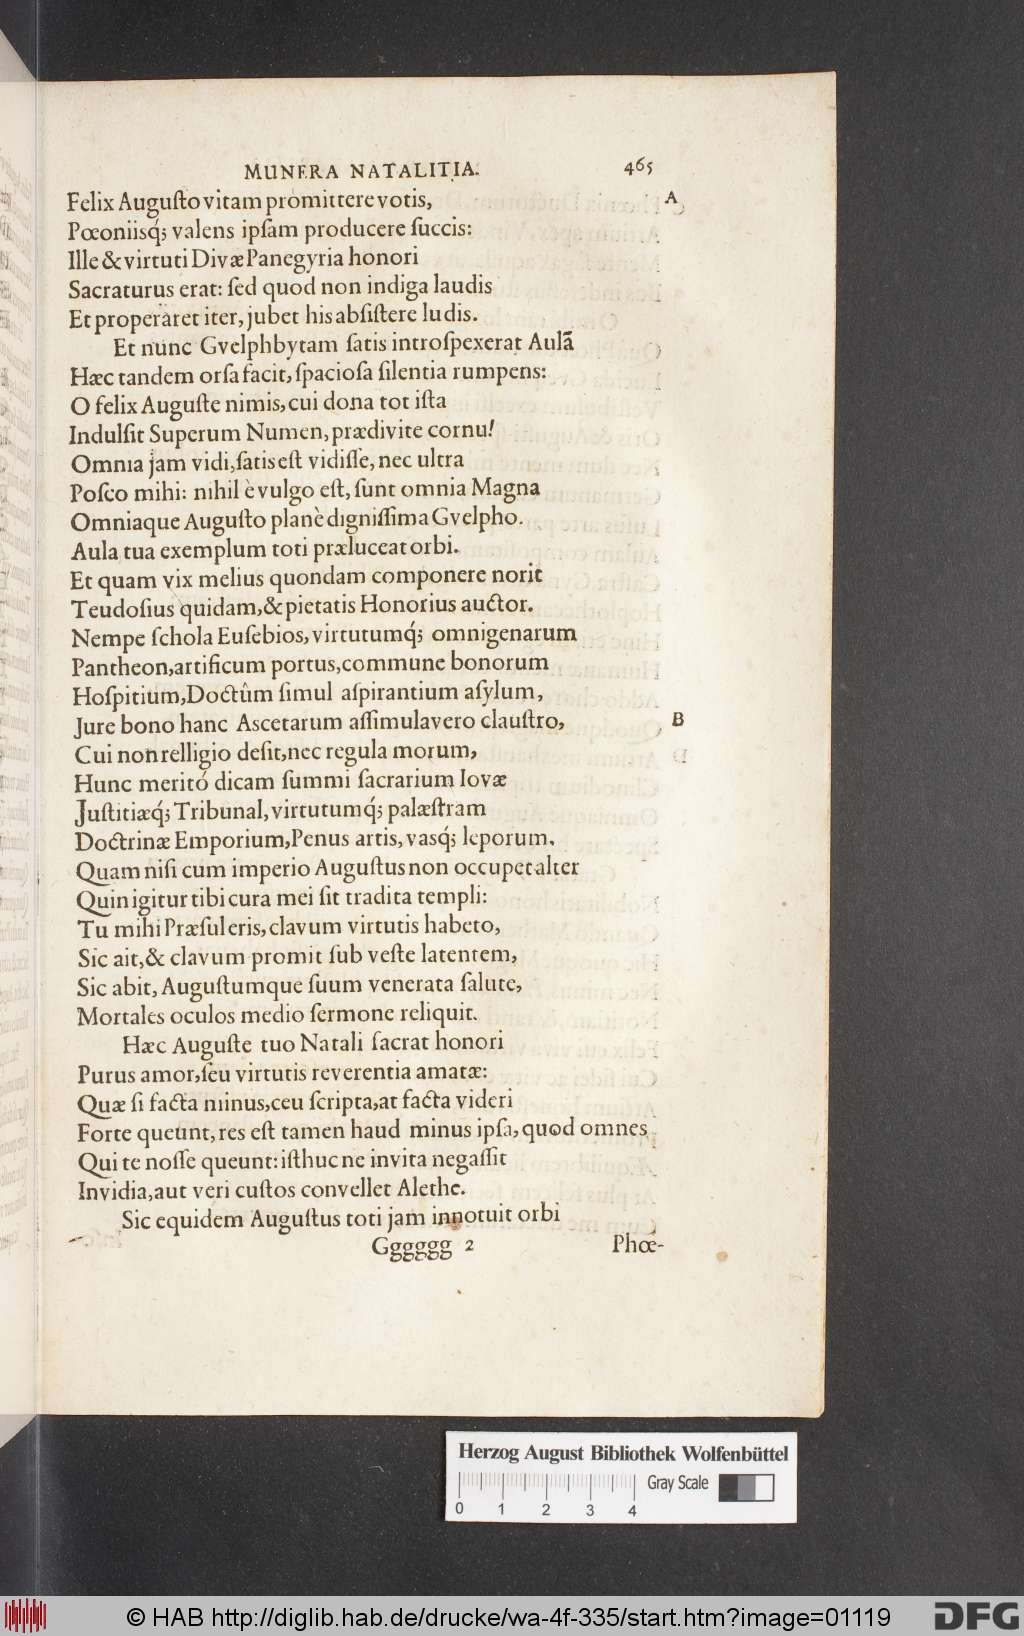 MUNERA NATALITIA. 465
Felix Auguſto vitam promittere votis, A
Pœoniisq́; valens ipſam producere ſuccis:
Ille & virtuti Divæ Panegyria honori
Sacraturus erat: ſed quod non indiga laudis
Et properaret iter, jubet his abſiſtere ludis.
Et nunc Gvelphbytam ſatis introſpexerat Aulã
Hæc tandem orſa facit, ſpacioſa ſilentia rumpens:
O felix Auguſte nimis, cui dona tot iſta
Indulſit Superum Numen, prædivite cornu!
Omnia jam vidi, ſatis eſt vidiſſe, nec ultra
Poſco mihi: nihil è vulgo eſt, ſunt omnia Magna
Omniaque Auguſto planè digniſſima Gvelpho.
Aula tua exemplum toti præluceat orbi.
Et quam vix melius quondam componere norit
Teudoſius quidam, & pietatis Honorius auctor.
Nempe ſchola Euſebios, virtutumq́; omnigenarum
Pantheon, artificum portus, commune bonorum
Hoſpitium, Doctûm ſimul aſpirantium aſylum,
Jure bono hanc Aſcetarum aſſimulavero clauſtro, B
Cui non relligio deſit, nec regula morum,
Hunc meritó dicam ſummi ſacrarium Iovæ
Juſtitiæq́; Tribunal, virtutumq́; palæſtram
Doctrinæ Emporium, Penus artis, vasq́; leporum.
Quam niſi cum imperio Auguſtus non occupet alter
Quin igitur tibi cura mei ſit tradita templi:
Tu mihi Præſul eris, clavum virtutis habeto,
Sic ait, & clavum promit ſub veſte latentem,
Sic abit, Auguſtumque ſuum venerata ſalute,
Mortales oculos medio ſermone reliquit.
Hæc Auguſte tuo Natali ſacrat honori
Purus amor, ſeu virtutis reverentia amatæ:
Quæ ſi facta minus, ceu ſcripta, at facta videri
Forte queunt, res eſt tamen haud minus ipſa, quod omnes
Qui te noſſe queunt: iſthuc ne invita negaſſit
Invidia, aut veri cuſtos convellet Alethe.
Sic equidem Auguſtus toti jam innotuit orbi
Gggggg 2 Phœ-
Herzog August Bibliothek Wolfenbüttel
Gray Scale
0 1 2 3 4
© HAB http://diglib.hab.de/drucke/wa-4f-335/start.htm?image=01119 DFG